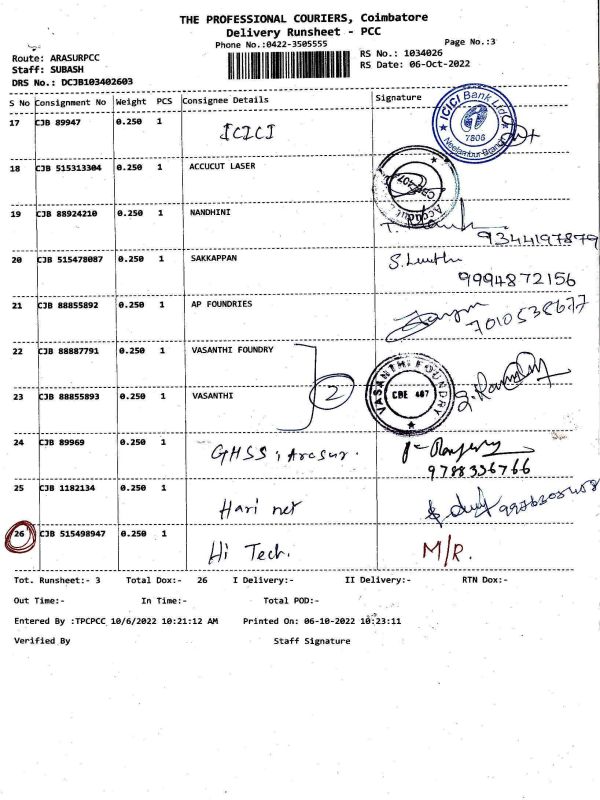 THE PROFESSIONAL COURIERS, Coimbatore
Delivery Runsheet - PCC
Phone No.:0422-3505555
Page No.:3
Route: ARASURPCC
RS No.: 1034026
Staff: SUBASH
RS Date: 06-Oct-2022
DRS No.: DCJB103402603
S No Consignment No Weight PCS Consignee Details Signature
17 CJB 89947 0.250 1 ICICI
ICICI Bank Ltd 7806
18 CJB 515313304 0.250 1 ACCUCUT LASER
CBE-407
19 CJB 88924210 0.250 1 NANDHINI
9344197879
20 CJB 515478087 0.250 1 SAKKAPPAN
9994872156
21 CJB 88855892 0.250 1 AP FOUNDRIES
7010538677
22 CJB 88887791 0.250 1 VASANTHI FOUNDRY
2
VASANTHI FOUNDRY CBE 407
23 CJB 88855893 0.250 1 VASANTHI
24 CJB 89969 0.250 1 GHSS, Arasur.
9788336766
25 CJB 1182134 0.250 1 Hari net
26 CJB 515498947 0.250 1 Hi Tech. M/R.
Tot. Runsheet:- 3 Total Dox:- 26 I Delivery:- II Delivery:- RTN Dox:-
Out Time:- In Time:- Total POD:-
Entered By :TPCPCC 10/6/2022 10:21:12 AM Printed On: 06-10-2022 10:23:11
Verified By Staff Signature